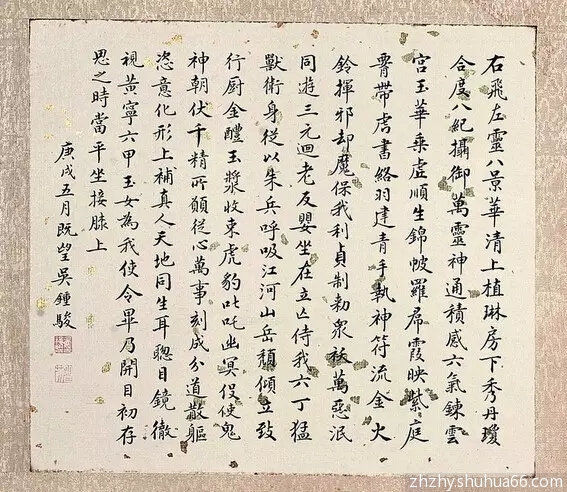 右飛左靈八景華清上植琳房下秀丹瓊
合度八紀攝御萬靈神通積感六氣鍊雲
宮玉華乘虛順生錦帔羅帬霞映紫庭
腰帶虎書絡羽建青手執神符流金火
鈴揮邪却魔保我利貞制勑衆祅萬惡泯
同遊三元迴老反嬰坐在立亾侍我六丁猛
獸衛身從以朱兵呼吸江河山岳頹傾立致
行厨金醴玉漿收束虎豹叱吒幽冥役使鬼
神朝伏千精所願從心萬事刻成分道散軀
恣意化形上補真人天地同生耳聰目鏡徹
視黃寧六甲玉女為我使令畢乃開目初存
思之時當平坐接膝上
庚戌五月既望吳鍾駿
zhzhyshuhua66.com